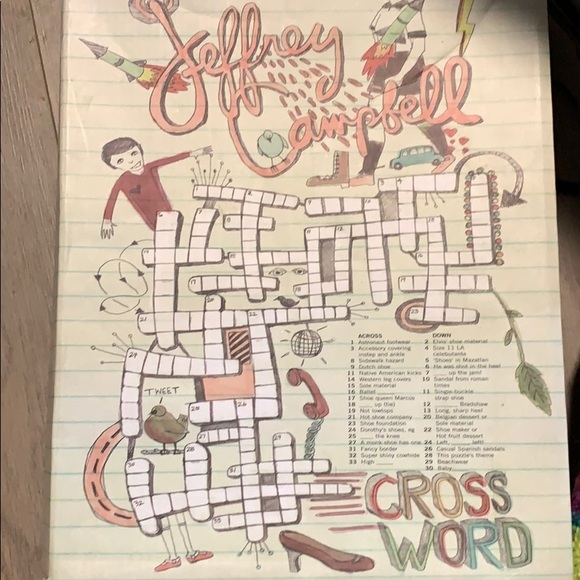 Jeffrey
Campbell
TWEET
ACROSS
1 Astronaut footwear
3 Accessory covering
instep and ankle
8 Sidewalk hazard
9 Dutch shoe
11 Native American kicks
14 Western leg covers
15 Sole material
16 Ballet ____
17 Shoe queen Marcos
18 ____ up the
19 Not lowtops
21 Hot shoe company
23 Shoe foundation
24 Dorothy's shoes, eg
25 ____ the knee
27 A monk shoe has one
31 Fancy border
32 Super shiny cowhide
33 High ____
DOWN
2 Elvis' shoe material
4 Size 11 LA
celebutante
5 'Shoes' in Mazatlan
6 He was shot in the heel
7 ____ up the
10 Sandal from roman
times
11 Single-buckle
strap shoe
12 ____ Bradshaw
13 Long, sharp heel
20 Belgian dessert or
Sole material
22 Shoe maker or
Hot fruit dessert
24 Left, ____, left!
26 Casual Spanish sandals
28 This puzzle's theme
29 Beachwear
30 Baby ____
CROSS
WORD